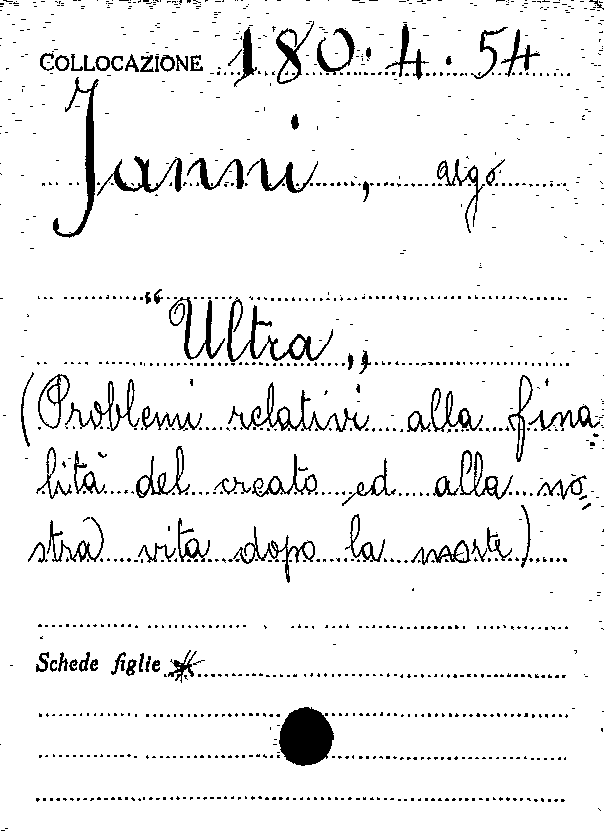 COLLOCAZIONE 180.4.54
Janni, argo
"Ultra„
(Problemi relativi alla fina=
lità del creato ed alla no=
stra) vita dopo la morte)
Schede figlie